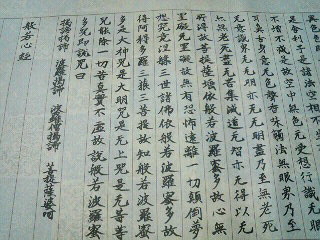 不增不減是故空中无色无受想行識无眼
耳鼻舌身意无色聲香味觸法無眼界乃至
无意識界无无明亦无无明盡乃至無老死
亦無老死盡无苦集滅道无智亦无得以无
所得故菩提薩埵依般若波羅蜜多故心
无罣礙无罣礙故无有恐怖遠離一切顛倒夢
想究竟涅槃三世諸佛依般若波羅蜜多故
得阿耨多羅三藐三菩提故知般若波羅蜜
多是大神咒是大明咒是无上咒是无等等
咒能除一切苦真實不虛故說般若波羅蜜
多咒即說咒曰
揭諦揭諦 波羅揭諦 波羅僧揭諦 菩提薩婆訶
般若心經